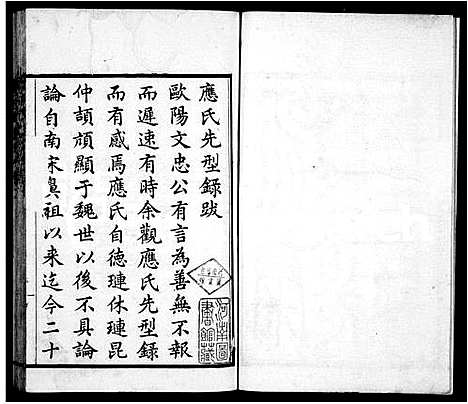 應氏先型錄跋
歐陽文忠公有言為善無不報
而遲速有時余觀應氏先型錄
而有感焉應氏自德璉休璉昆
仲頡頏顯于魏世以後不具論
論自南宋㠱祖以来迄今二十
河南圖
書館藏